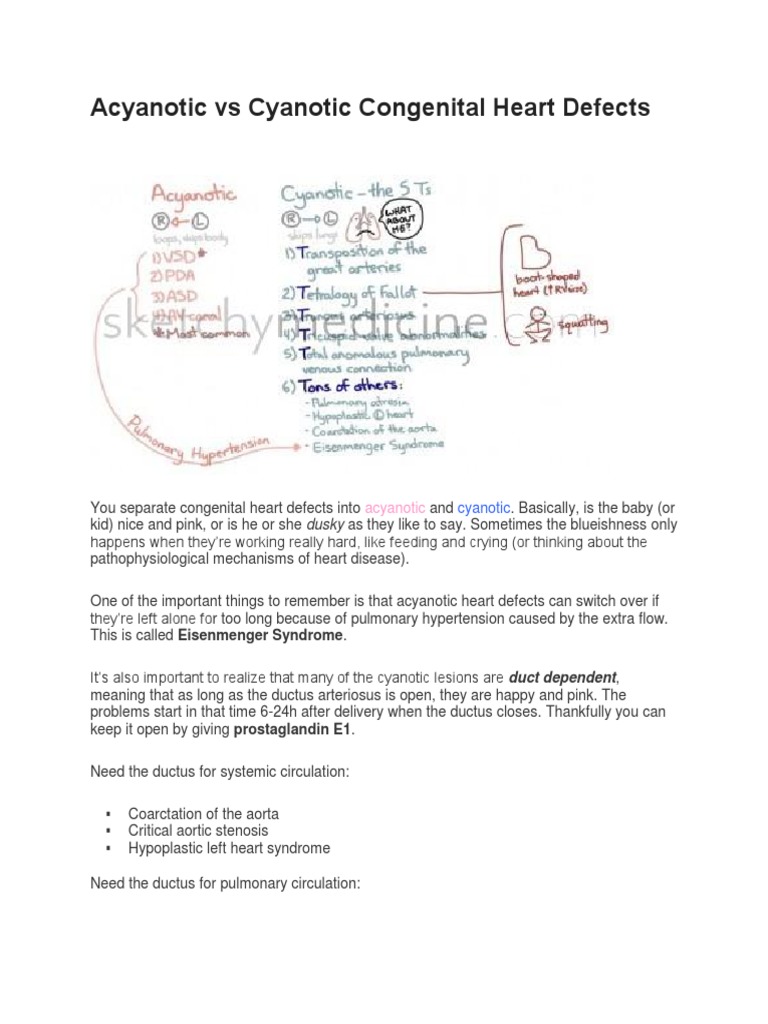 Acyanotic vs Cyanotic Congenital Heart Defects
Acyanotic
Ⓡ←Ⓛ
loops, skips body
1) VSD*
2) PDA
3) ASD
4) AV canal
*Most common
Pulmonary Hypertension
Cyanotic – the 5 Ts
Ⓡ→Ⓛ
skips lungs
WHAT
ABOUT
ME?
1) Transposition of the
great arteries
2) Tetralogy of Fallot
3) Truncus arteriosus
4) Tricuspid valve abnormalities
5) Total anomalous pulmonary
venous connection
6) Tons of others:
- Pulmonary atresia
- Hypoplastic Ⓛ heart
- Coarctation of the aorta
- Eisenmenger Syndrome
boot-shaped
heart (↑RV size)
squatting
sketchymedicine.com
You separate congenital heart defects into acyanotic and cyanotic. Basically, is the baby (or
kid) nice and pink, or is he or she dusky as they like to say. Sometimes the blueishness only
happens when they're working really hard, like feeding and crying (or thinking about the
pathophysiological mechanisms of heart disease).
One of the important things to remember is that acyanotic heart defects can switch over if
they're left alone for too long because of pulmonary hypertension caused by the extra flow.
This is called Eisenmenger Syndrome.
It's also important to realize that many of the cyanotic lesions are duct dependent,
meaning that as long as the ductus arteriosus is open, they are happy and pink. The
problems start in that time 6-24h after delivery when the ductus closes. Thankfully you can
keep it open by giving prostaglandin E1.
Need the ductus for systemic circulation:
▪ Coarctation of the aorta
▪ Critical aortic stenosis
▪ Hypoplastic left heart syndrome
Need the ductus for pulmonary circulation: